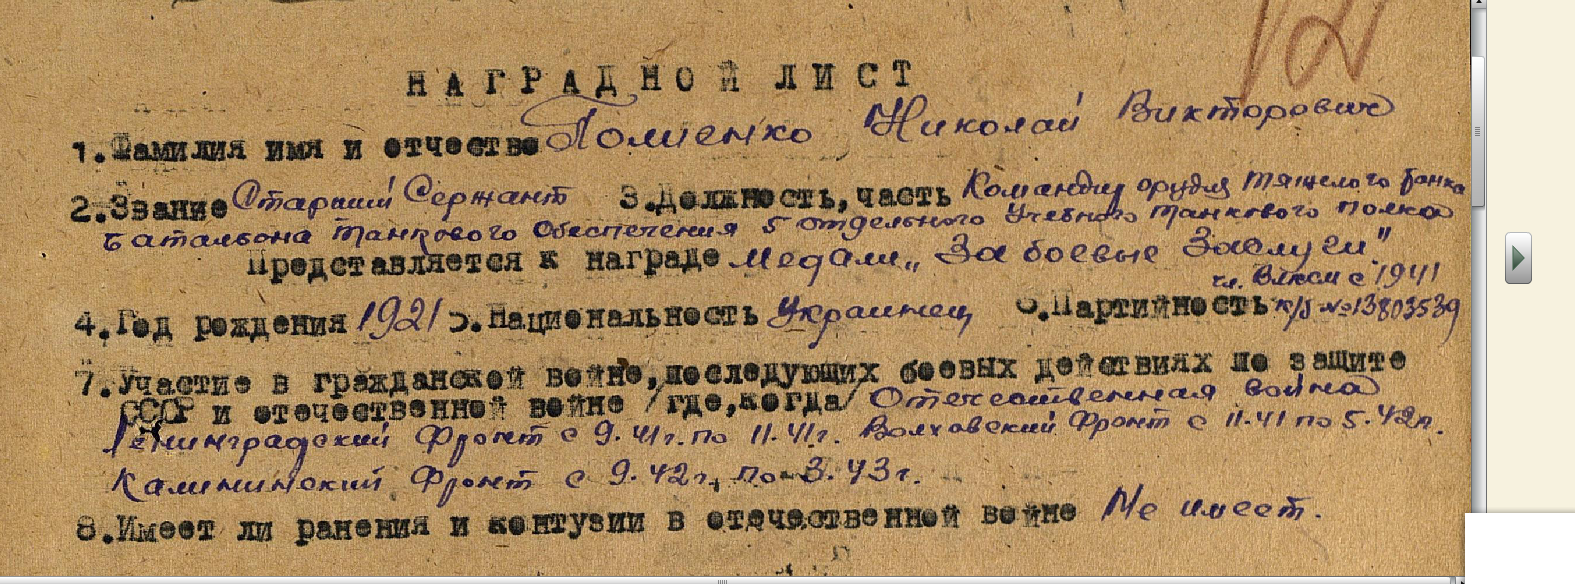 НАГРАДНОЙ ЛИСТ
1. Фамилия имя и отчество Николай Викторович
2. Звание Старший Сержант 3. Должность, часть Командир орудия тяжелого танка
батальона танкового обеспечения 5 отдельного Учебного танкового полка
Представляется к награде медали „За боевые Заслуги".
чл. Влксм с 1941
4. Год рождения 1921 5. Национальность Украинец 6. Партийность к/б №13803539
7. Участие в гражданской войне, последующих боевых действиях по защите
СССР и отечественной войне /где, когда/ Отечественная война
Ленинградский Фронт с 9.41г. по 11.41г. Волховский Фронт с 11.41 по 5.42г.
Калининский Фронт с 9.42г. по 3.43г.
8. Имеет ли ранения и контузии в отечественной войне Не имеет.